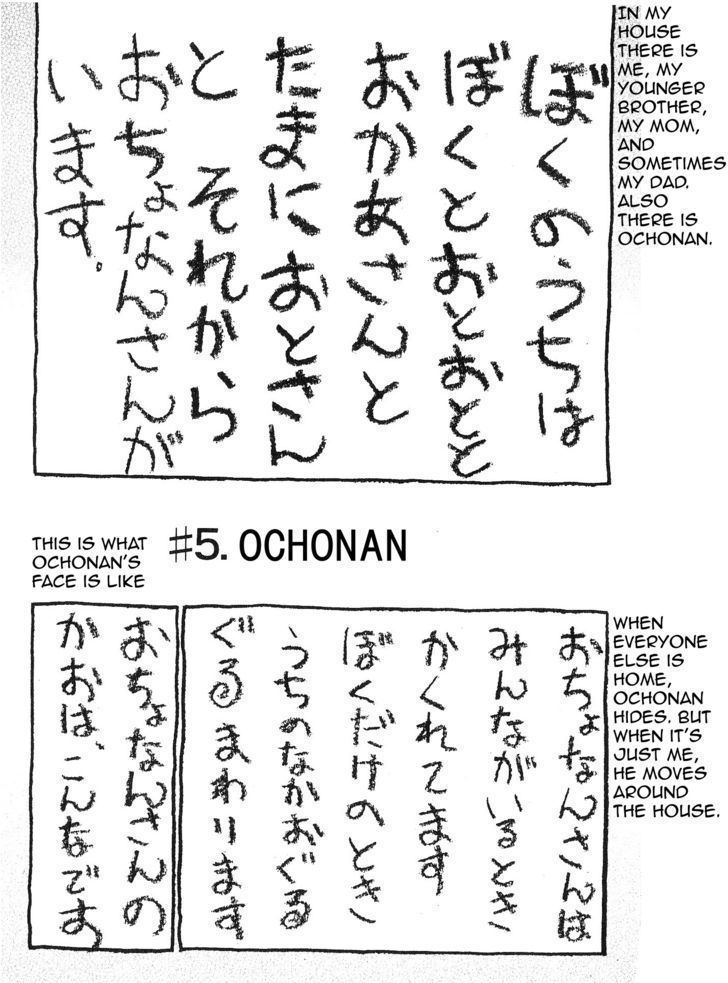 IN MY
HOUSE
THERE IS
ME, MY
YOUNGER
BROTHER,
MY MOM,
AND
SOMETIMES
MY DAD.
ALSO
THERE IS
OCHONAN.
ぼくのうちは
ぼくとおとおとと
おかあさんと
たまにおとさん
と それから
おちょなんさんが
います。
#5. OCHONAN
WHEN
EVERYONE
ELSE IS
HOME,
OCHONAN
HIDES. BUT
WHEN IT'S
JUST ME,
HE MOVES
AROUND
THE HOUSE.
おちょなんさんは
みんながいるとき
かくれてます
ぼくだけのとき
うちのなかおぐる
ぐるまわります
THIS IS WHAT
OCHONAN'S
FACE IS LIKE
おちょなんさんの
かおは、こんなです。